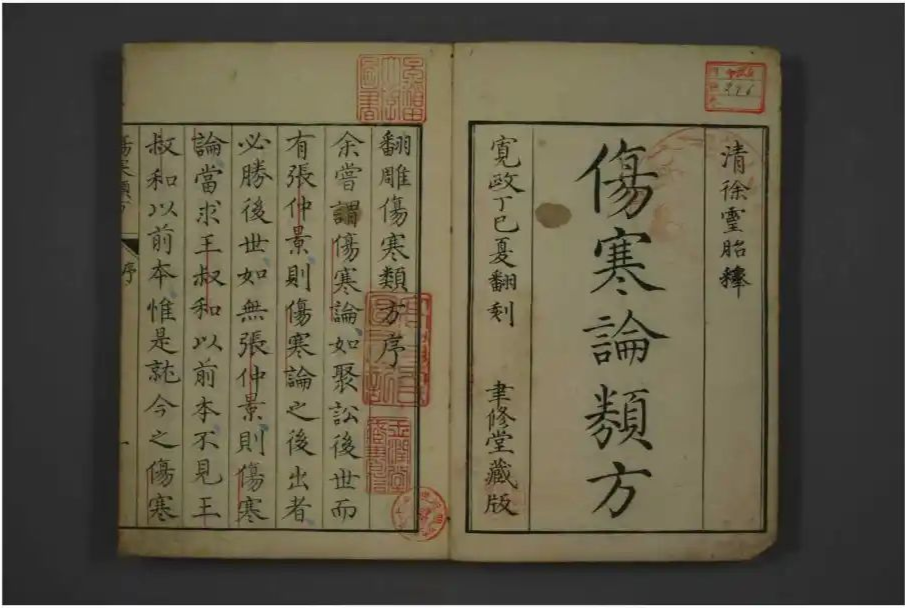 清徐霊胎釋
傷寒論類方
寛政丁巳夏翻刻 聿修堂藏版
翻雕傷寒類方序
余嘗謂傷寒論如聚訟後世而
有張仲景則傷寒論之後出者
必勝後世如無張仲景則傷寒
論當求王叔和以前本不見王
叔和以前本惟是就今之傷寒
傷寒類方 序 一